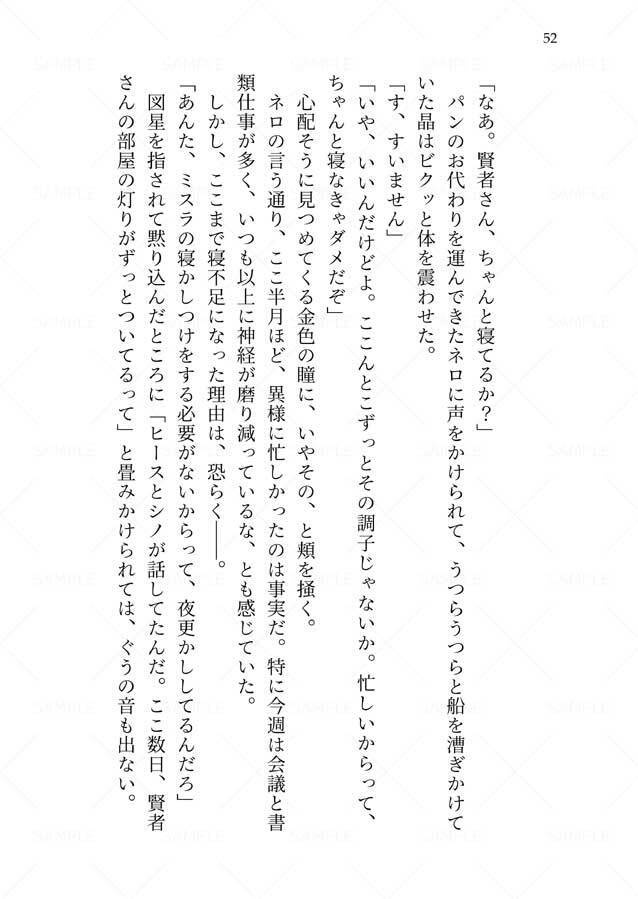 52
「なあ。賢者さん、ちゃんと寝てるか？」
パンのお代わりを運んできたネロに声をかけられて、うつらうつらと船を漕ぎかけて
いた晶はビクッと体を震わせた。
「す、すいません」
「いや、いいんだけどよ。ここんとこずっとその調子じゃないか。忙しいからって、
ちゃんと寝なきゃダメだぞ」
心配そうに見つめてくる金色の瞳に、いやその、と頬を掻く。
ネロの言う通り、ここ半月ほど、異様に忙しかったのは事実だ。特に今週は会議と書
類仕事が多く、いつも以上に神経が磨り減っているな、とも感じていた。
しかし、ここまで寝不足になった理由は、恐らく――。
「あんた、ミスラの寝かしつけをする必要がないからって、夜更かししてるんだろ」
図星を指されて黙り込んだところに「ヒースとシノが話してたんだ。ここ数日、賢者
さんの部屋の灯りがずっとついてるって」と畳みかけられては、ぐうの音も出ない。
SAMPLE